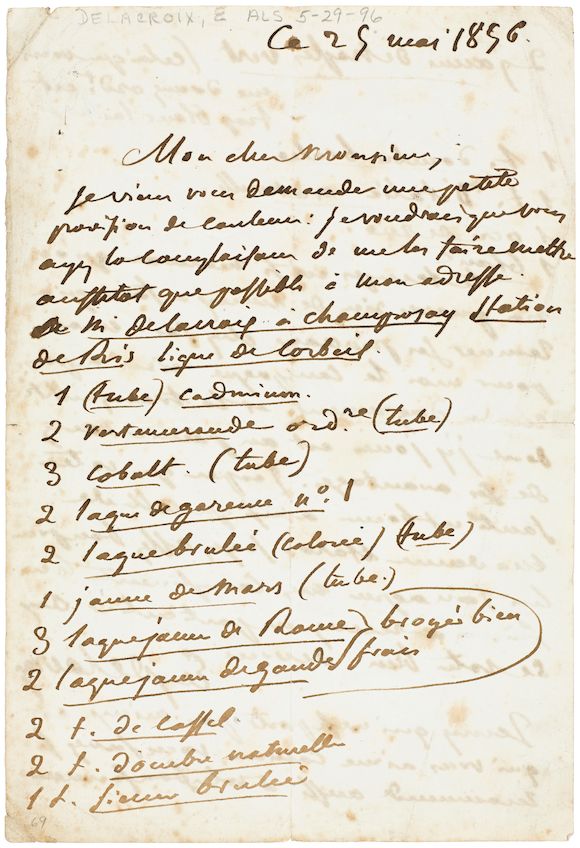 DELACROIX, E ALS 5-29-96
Ce 29 mai 1856.
Mon cher Monsieur,
Je viens vous demander une petite
provision de couleurs : Je voudrais que vous
ayez la complaisance de me les faire mettre
aussitot que possible à mon adresse.
M. delacroix à champrosay Station
de Ris ligne de Corbeil.
1 (tube) cadmium.
2 vert emeraude ord.re (tube)
3 cobalt. (tube)
2 laque de garance no. 1
2 laque brulée (colorée) tube)
1 jaune de Mars (tube.)
3 laque jaune de Rome broyées bien
2 laque jaune de gaude frais
2 t. de Cassel.
2 t. d'ombre naturelle
1 t. Sienne brulée
69